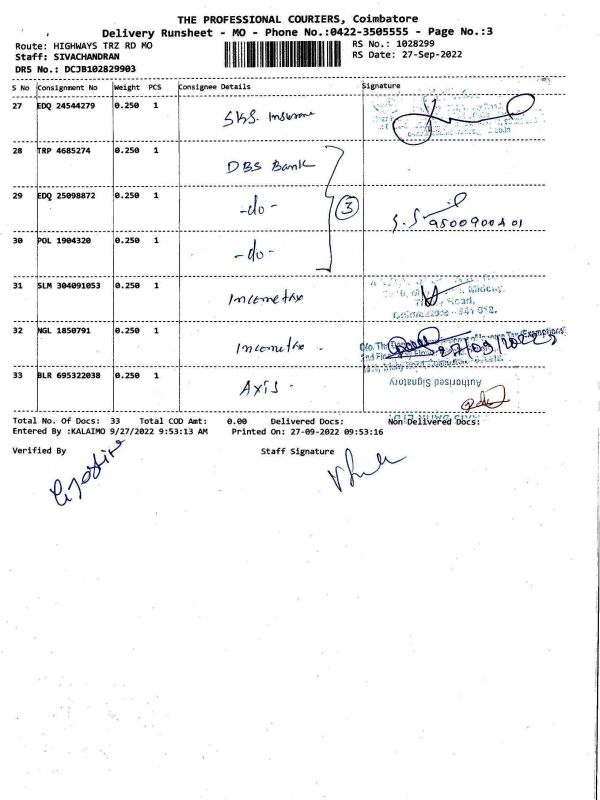 THE PROFESSIONAL COURIERS, Coimbatore
Delivery Runsheet - MO - Phone No.:0422-3505555 - Page No.:3
Route: HIGHWAYS TRZ RD MO RS No.: 1028299
Staff: SIVACHANDRAN RS Date: 27-Sep-2022
DRS No.: DCJB102829903
S No Consignment No Weight PCS Consignee Details Signature
27 EDQ 24544279 0.250 1 SKS. Insurance
28 TRP 4685274 0.250 1 DBS Bank
29 EDQ 25098872 0.250 1 -do- 3
30 POL 1904320 0.250 1 -do-
31 SLM 304091053 0.250 1 Incometax Road,
32 NGL 1850791 0.250 1 Incometax
33 BLR 695322038 0.250 1 AXIS. Authorised Signatory
Total No. Of Docs: 33 Total COD Amt: 0.00 Delivered Docs: Non Delivered Docs:
Entered By :KALAIMO 9/27/2022 9:53:13 AM Printed On: 27-09-2022 09:53:16
Verified By Staff Signature